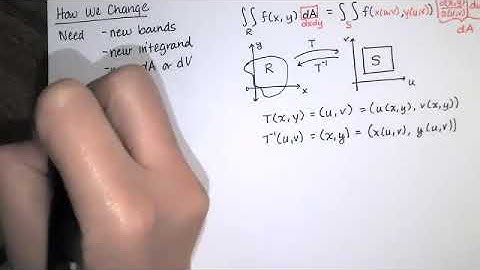 How We Change
Need - new bounds
- new integrand
dA or dV
∬_R f(x,y) dA = ∬_S f(x(u,v), y(u,v)) |∂(x,y)/∂(u,v)| du
dxdy
dA
y
R
x
T
T⁻¹
v
S
u
T(x,y) = (u,v) = (u(x,y), v(x,y))
T⁻¹(u,v) = (x,y) = (x(u,v), y(u,v))